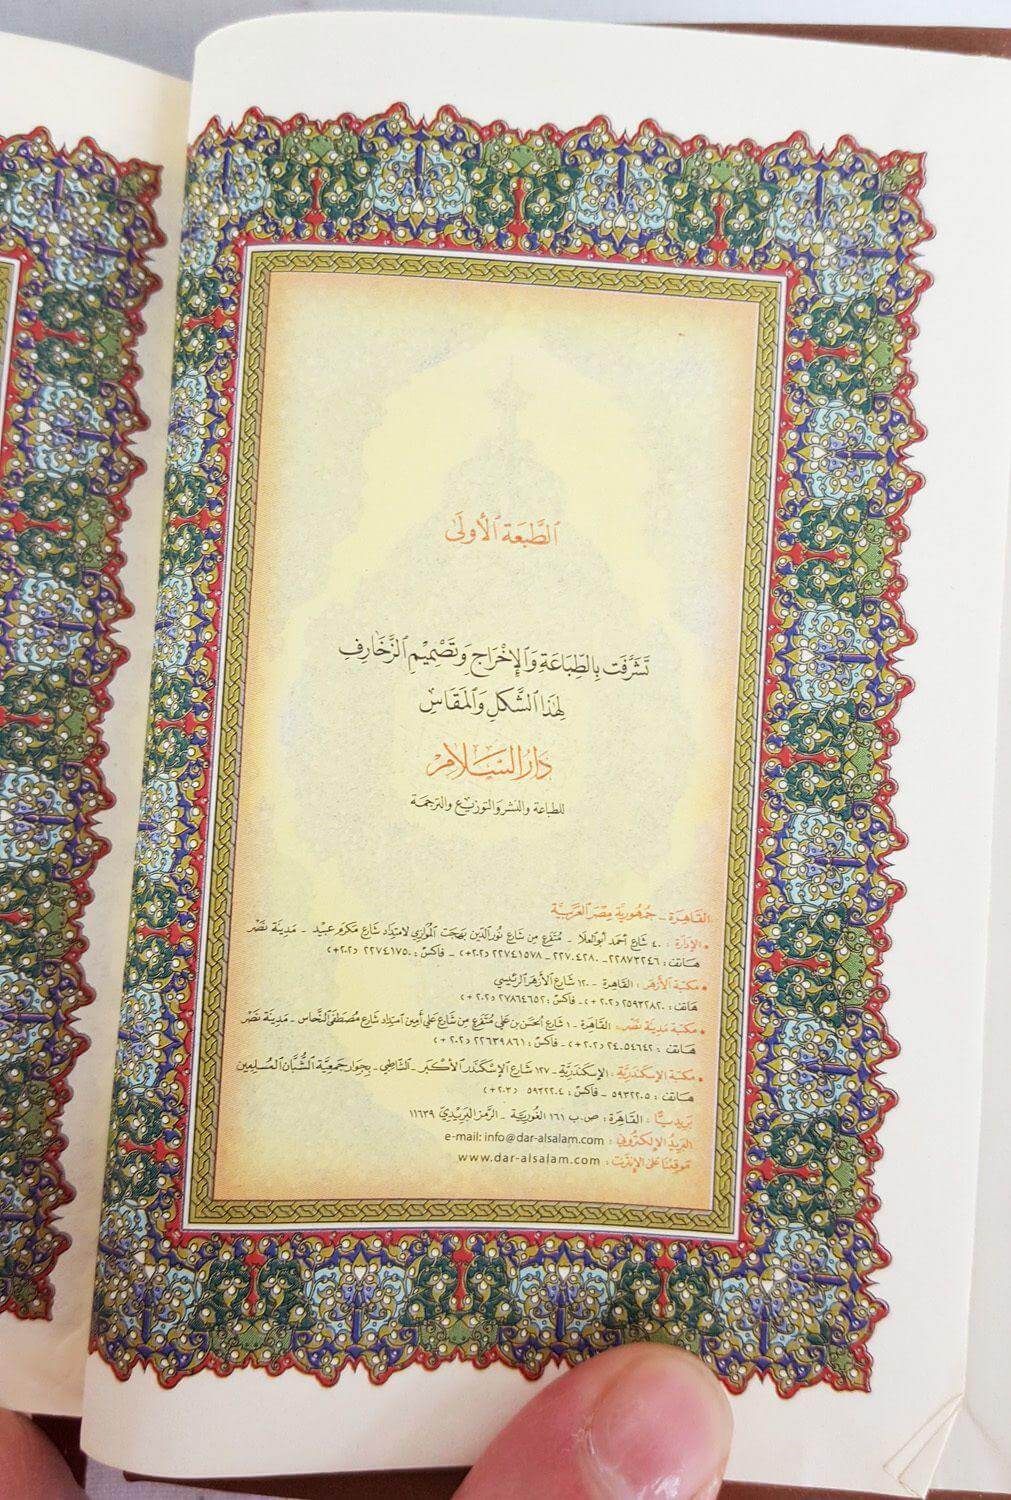 الطَّبْعَة الأُولَى
تَشَرَّفَت بِالطِّبَاعَةِ وَالإِخْرَاجِ وَتَصْمِيمِ الزَّخَارِفِ
لِهٰذَا الشَّكلِ وَالمَقَاسِ
دَارُ السَّلَامِ
للطباعة والنشر والتوزيع والترجمة
القَاهِرَة - جُمهُورِيَّة مِصْرَ العَرَبِيَّة
• الإدَارَة : ٤٠ شارع أحمد أبو العلا - متفرع من شارع نور الدين بهجت الموازي لامتداد شارع مكرم عبيد - مدينة نصر
هاتف : ٢٢٨٧٣٢٤٦ - ٢٢٧٠٤٢٨٠ - ٢٢٧٤١٥٧٨ ( ٢٠٢ + ) - فاكس : ٢٢٧٤١٧٥٠ ( ٢٠٢ + )
• مكتبة الأزهر : القاهرة - ١٢٠ شارع الأزهر الرئيسي
هاتف : ( ٢٠٢ + ) - فاكس : ( ٢٠٢ + )
• مكتبة مدينة نصر : القاهرة - ١ شارع الحسن بن علي متفرع من شارع علي أمين امتداد شارع مصطفى النحاس - مدينة نصر
هاتف : ٢٤٠٥٤٦٤٢ ( ٢٠٢ + ) - فاكس : ٢٢٦٣٩٨٦١ ( ٢٠٢ + )
• مكتبة الإسكندرية : الإسكندرية - ١٢٧ شارع الإسكندر الأكبر - الشاطبي - بجوار جمعية الشبان المسلمين
هاتف : ٥٩٣٢٢٠٥ - فاكس : ٥٩٣٢٢٠٤ ( ٢٠٣ + )
بريديًّا : القاهرة : ص.ب ١٦١ الغورية - الرمز البريدي ١١٦٣٩
البريد الإلكتروني : e-mail: info@dar-alsalam.com
موقعنا على الإنترنت : www.dar-alsalam.com